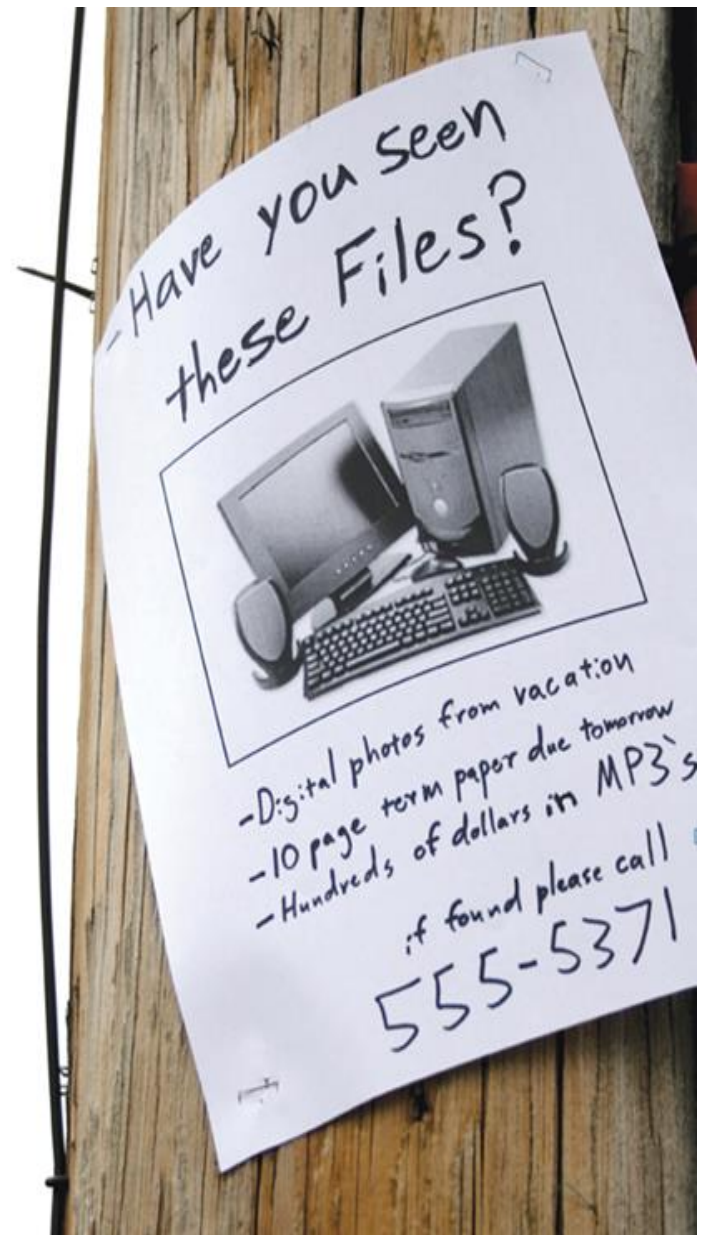 Have you seen
these Files?
-Digital photos from vacation
-10 page term paper due tomorrow
-Hundreds of dollars in MP3's
if found please call
555-5371